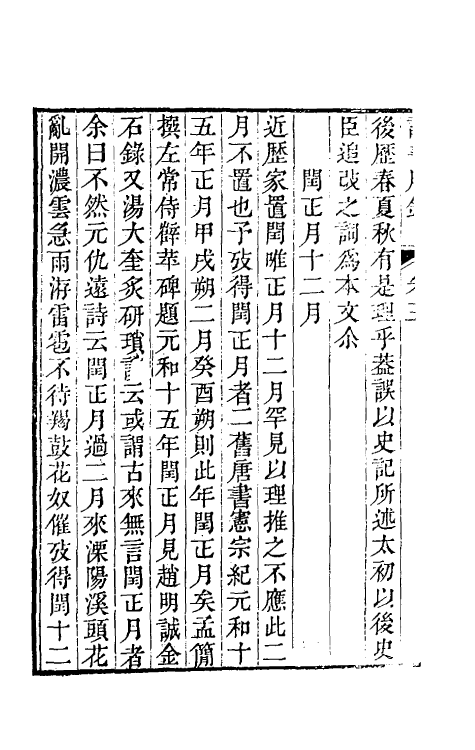 後歷春夏秋有是理乎葢誤以史記所述太初以後史
臣追改之詞爲本文尒
閏正月十二月
近歷家置閏唯正月十二月罕見以理推之不應此二
月不置也予攷得閏正月者二舊唐書憲宗紀元和十
五年正月甲戌朔二月癸酉朔則此年閏正月矣孟簡
撰左常侍薜苹碑題元和十五年閏正月見趙明誠金
石錄又湯大奎炙研瑣談云或謂古來無言閏正月者
余曰不然元仇遠詩云閏正月過二月來溧陽溪頭花
亂開濃雲急雨洊雷雹不待羯鼓花奴催攷得閏十二